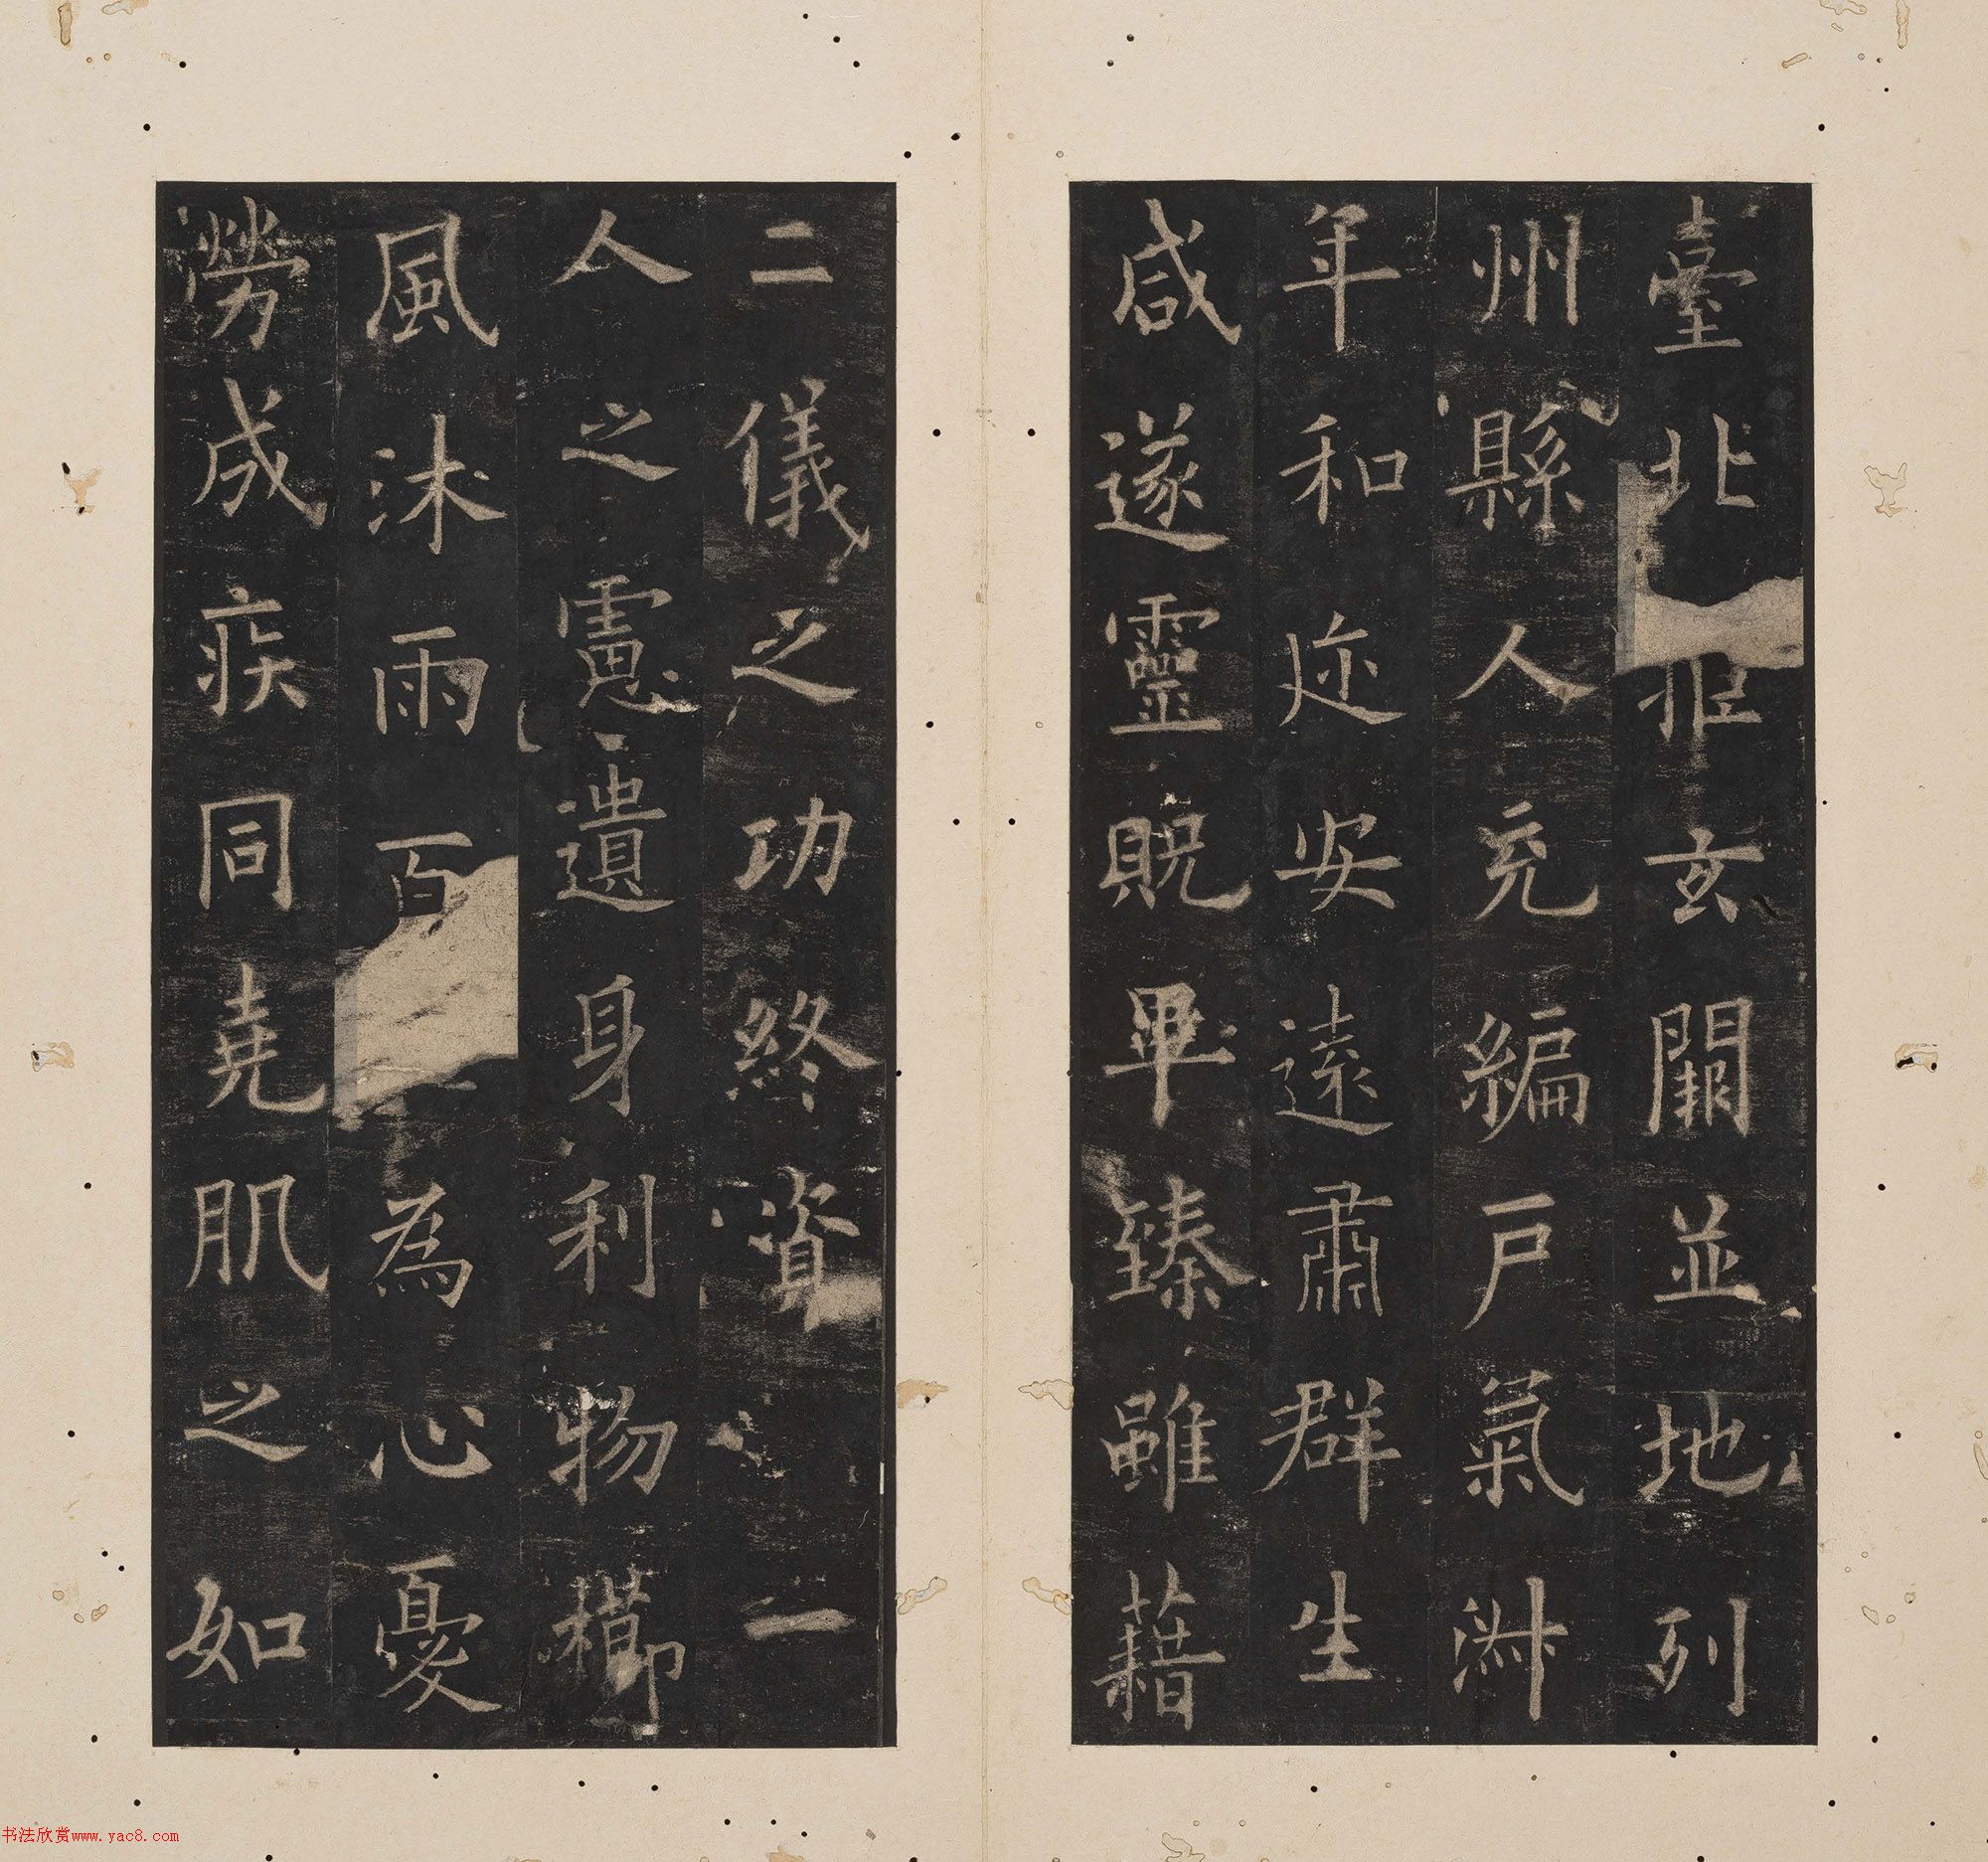 臺北拒玄闕並地列
州縣人充編戶氣淑
年和迩安遠肅群生
咸遂靈貺畢臻雖藉
二儀之功終資一
人之慮遺身利物櫛
風沐雨百為心憂
勞成疾同堯肌之如
书法欣赏www.yac8.com